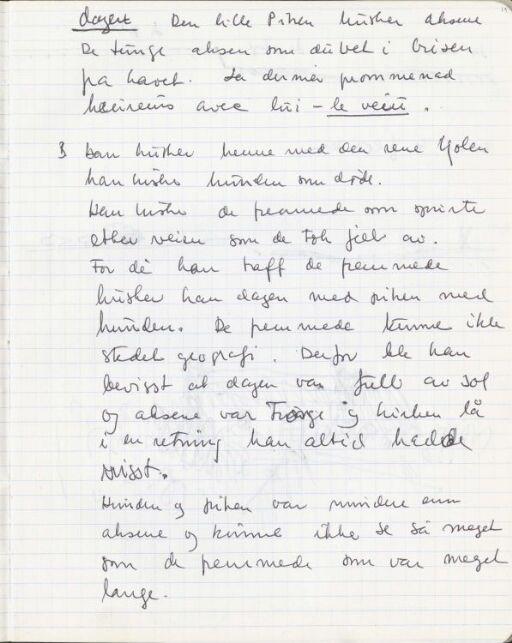 dagen Den lille Piken husker aksene
De tunge aksen som duvet i brisen
på havet. La dernier prommenad
heureuse avec lui – le veiu.
3 Han husker henne med den rene kjolen
han husker hunden som døde.
Han husker de fremmede som spurte
etter veien som de tok feil av.
For dè han traff de fremmede
husker han dagen med piken med
hunden. De fremmede kunne ikke
stedet geografi. Derfor ble han
bevisst at dagen var full av sol
og aksene var Tunge og kirken lå
i en retning han altid hadde
visst.
Hunden og piken var mindre enn
aksene og kunne ikke se så meget
som de fremmede som var meget
lange.